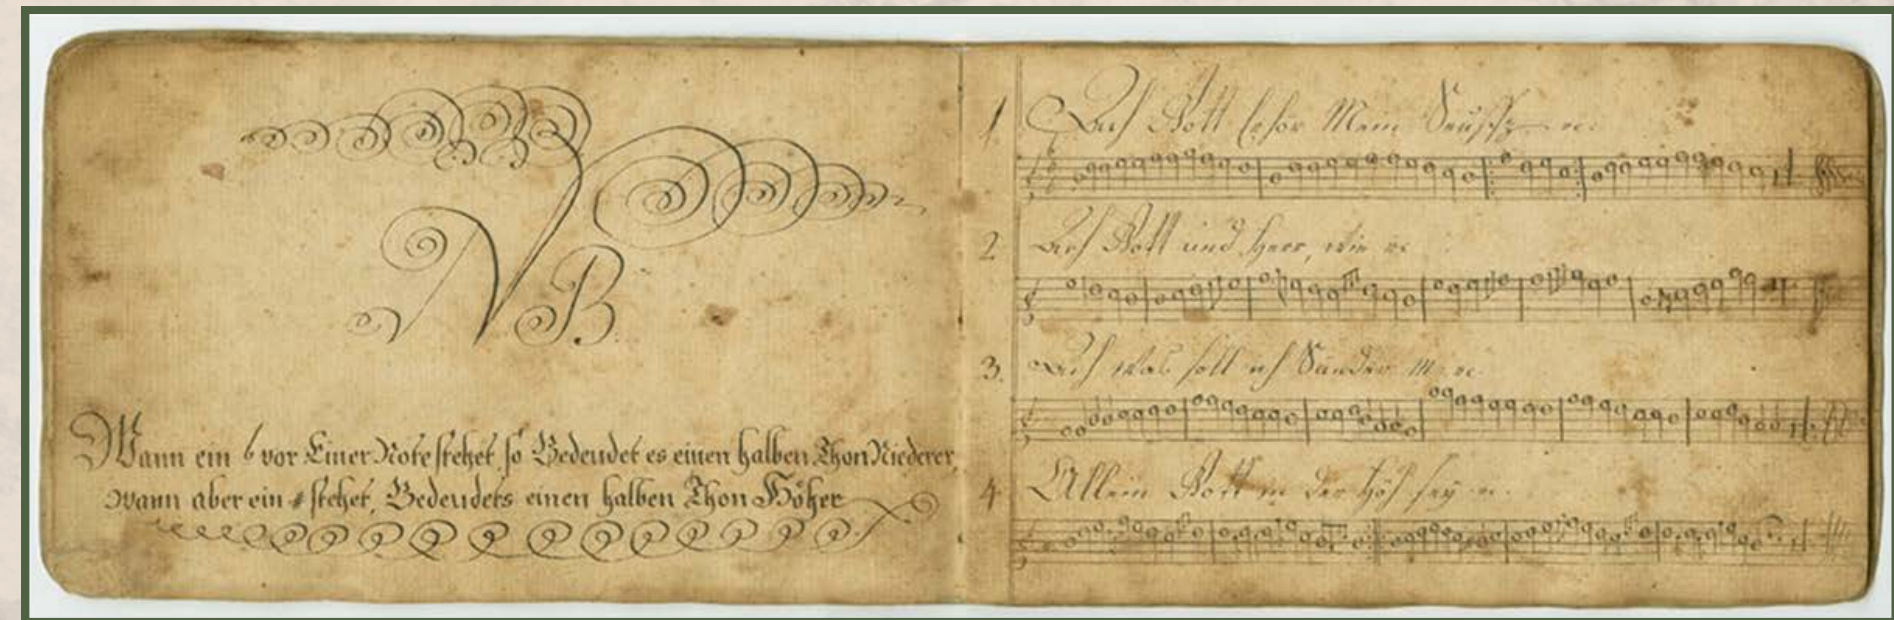 NB
Wann ein b vor Einer Note stehet so Bedeudet es einen halben Thon Niederer,
wann aber ein # stehet, Bedeudets einen halben Thon Höher
1 Ach Gott Erhör Mein
2 Ach Gott und Herr, wie
3. Ach was soll ich Sünder M:
4. Allein Gott in der Höh sey